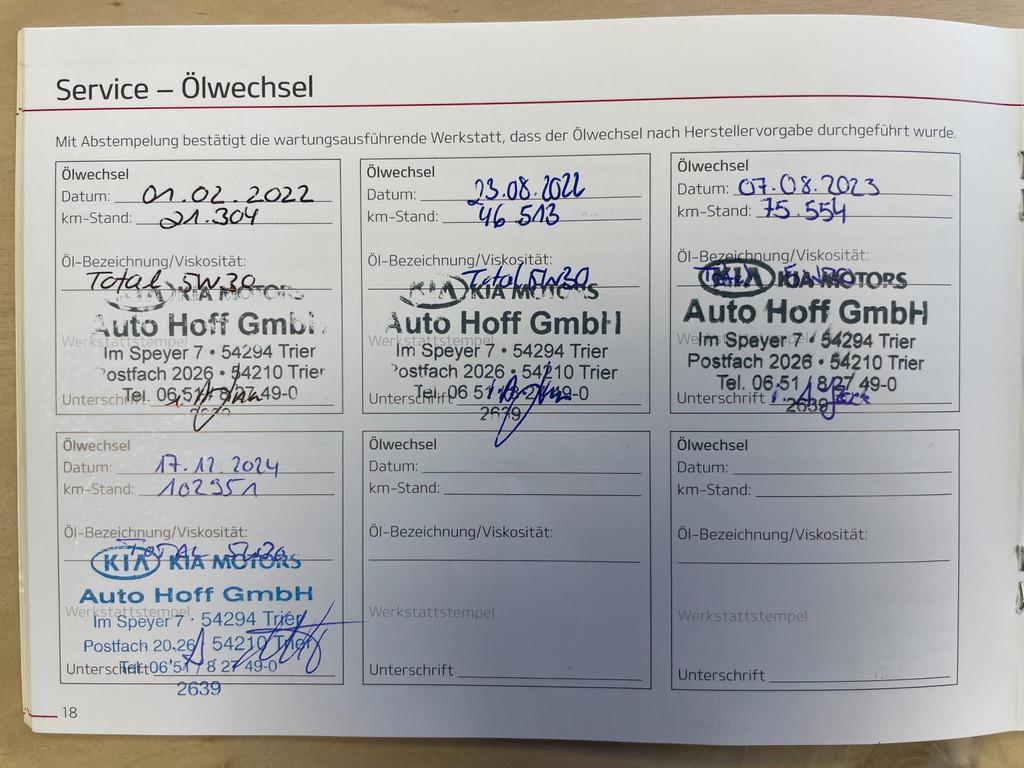 Service – Ölwechsel
Mit Abstempelung bestätigt die wartungsausführende Werkstatt, dass der Ölwechsel nach Herstellervorgabe durchgeführt wurde.
Ölwechsel
Datum: 01.02.2022
km-Stand: 21.304
Öl-Bezeichnung/Viskosität:
Total 5W30
KIA KIA MOTORS
Auto Hoff GmbH
Werkstattstempel
Im Speyer 7 • 54294 Trier
Postfach 2026 • 54210 Trier
Tel. 06 51 / 8 27 49-0
Unterschrift
2639
Ölwechsel
Datum: 23.08.2022
km-Stand: 46 513
Öl-Bezeichnung/Viskosität:
Total 5W30
KIA KIA MOTORS
Auto Hoff GmbH
Werkstattstempel
Im Speyer 7 • 54294 Trier
Postfach 2026 • 54210 Trier
Tel. 06 51 / 8 27 49-0
Unterschrift
2639
Ölwechsel
Datum: 07.08.2023
km-Stand: 75.554
Öl-Bezeichnung/Viskosität:
Total 5W30
KIA KIA MOTORS
Auto Hoff GmbH
Im Speyer 7 • 54294 Trier
Postfach 2026 • 54210 Trier
Tel. 06 51 / 8 27 49-0
Unterschrift
2639
Ölwechsel
Datum: 17.12.2024
km-Stand: 102951
Öl-Bezeichnung/Viskosität:
TOTAL 5W30
KIA KIA MOTORS
Auto Hoff GmbH
Werkstattstempel
Im Speyer 7 · 54294 Trier
Postfach 20 26 54210 Trier
Tel. 06 51 / 8 27 49-0
Unterschrift
2639
Ölwechsel
Datum:
km-Stand:
Öl-Bezeichnung/Viskosität:
Werkstattstempel
Unterschrift
Ölwechsel
Datum:
km-Stand:
Öl-Bezeichnung/Viskosität:
Werkstattstempel
Unterschrift
18